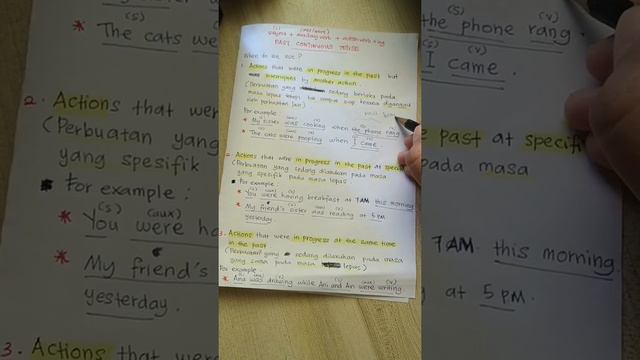 (s) (was/were)
subject + auxiliary verb + action verb + ing
PAST CONTINUOUS TENSE
When to we use?
1. Actions that were in progress in the past but
interrupted by another action.
(Perbuatan yang sedang berlaku pada
masa lepas tetapi
oleh perbuatan lain)
For example:
* My sister was cooking when the phone rang
* The cats were pooping when I came
2. Actions that were in progress in the past at specific
(Perbuatan yang sedang dilakukan pada masa
yang spesifik pada masa lepas)
For example:
* You were having breakfast at 7AM this morning
* My friend's sister was reading at 5 pm
yesterday.
3. Actions that were in progress at the same time
in the past
(Perbuatan yang sedang dilakukan pada masa
yang sama pada masa lepas)
For example:
* And was drawing while Ani and Ain were writing
(s)
* The cats were
2. Actions that were
(Perbuatan yang
yang spesifik
For example:
(s) (aux)
* You were ha
* My friend's
yesterday.
3. Actions that were
(s) (v)
the phone rang
I came
the past at specifi
pada masa
7AM this morning
at 5 pm.